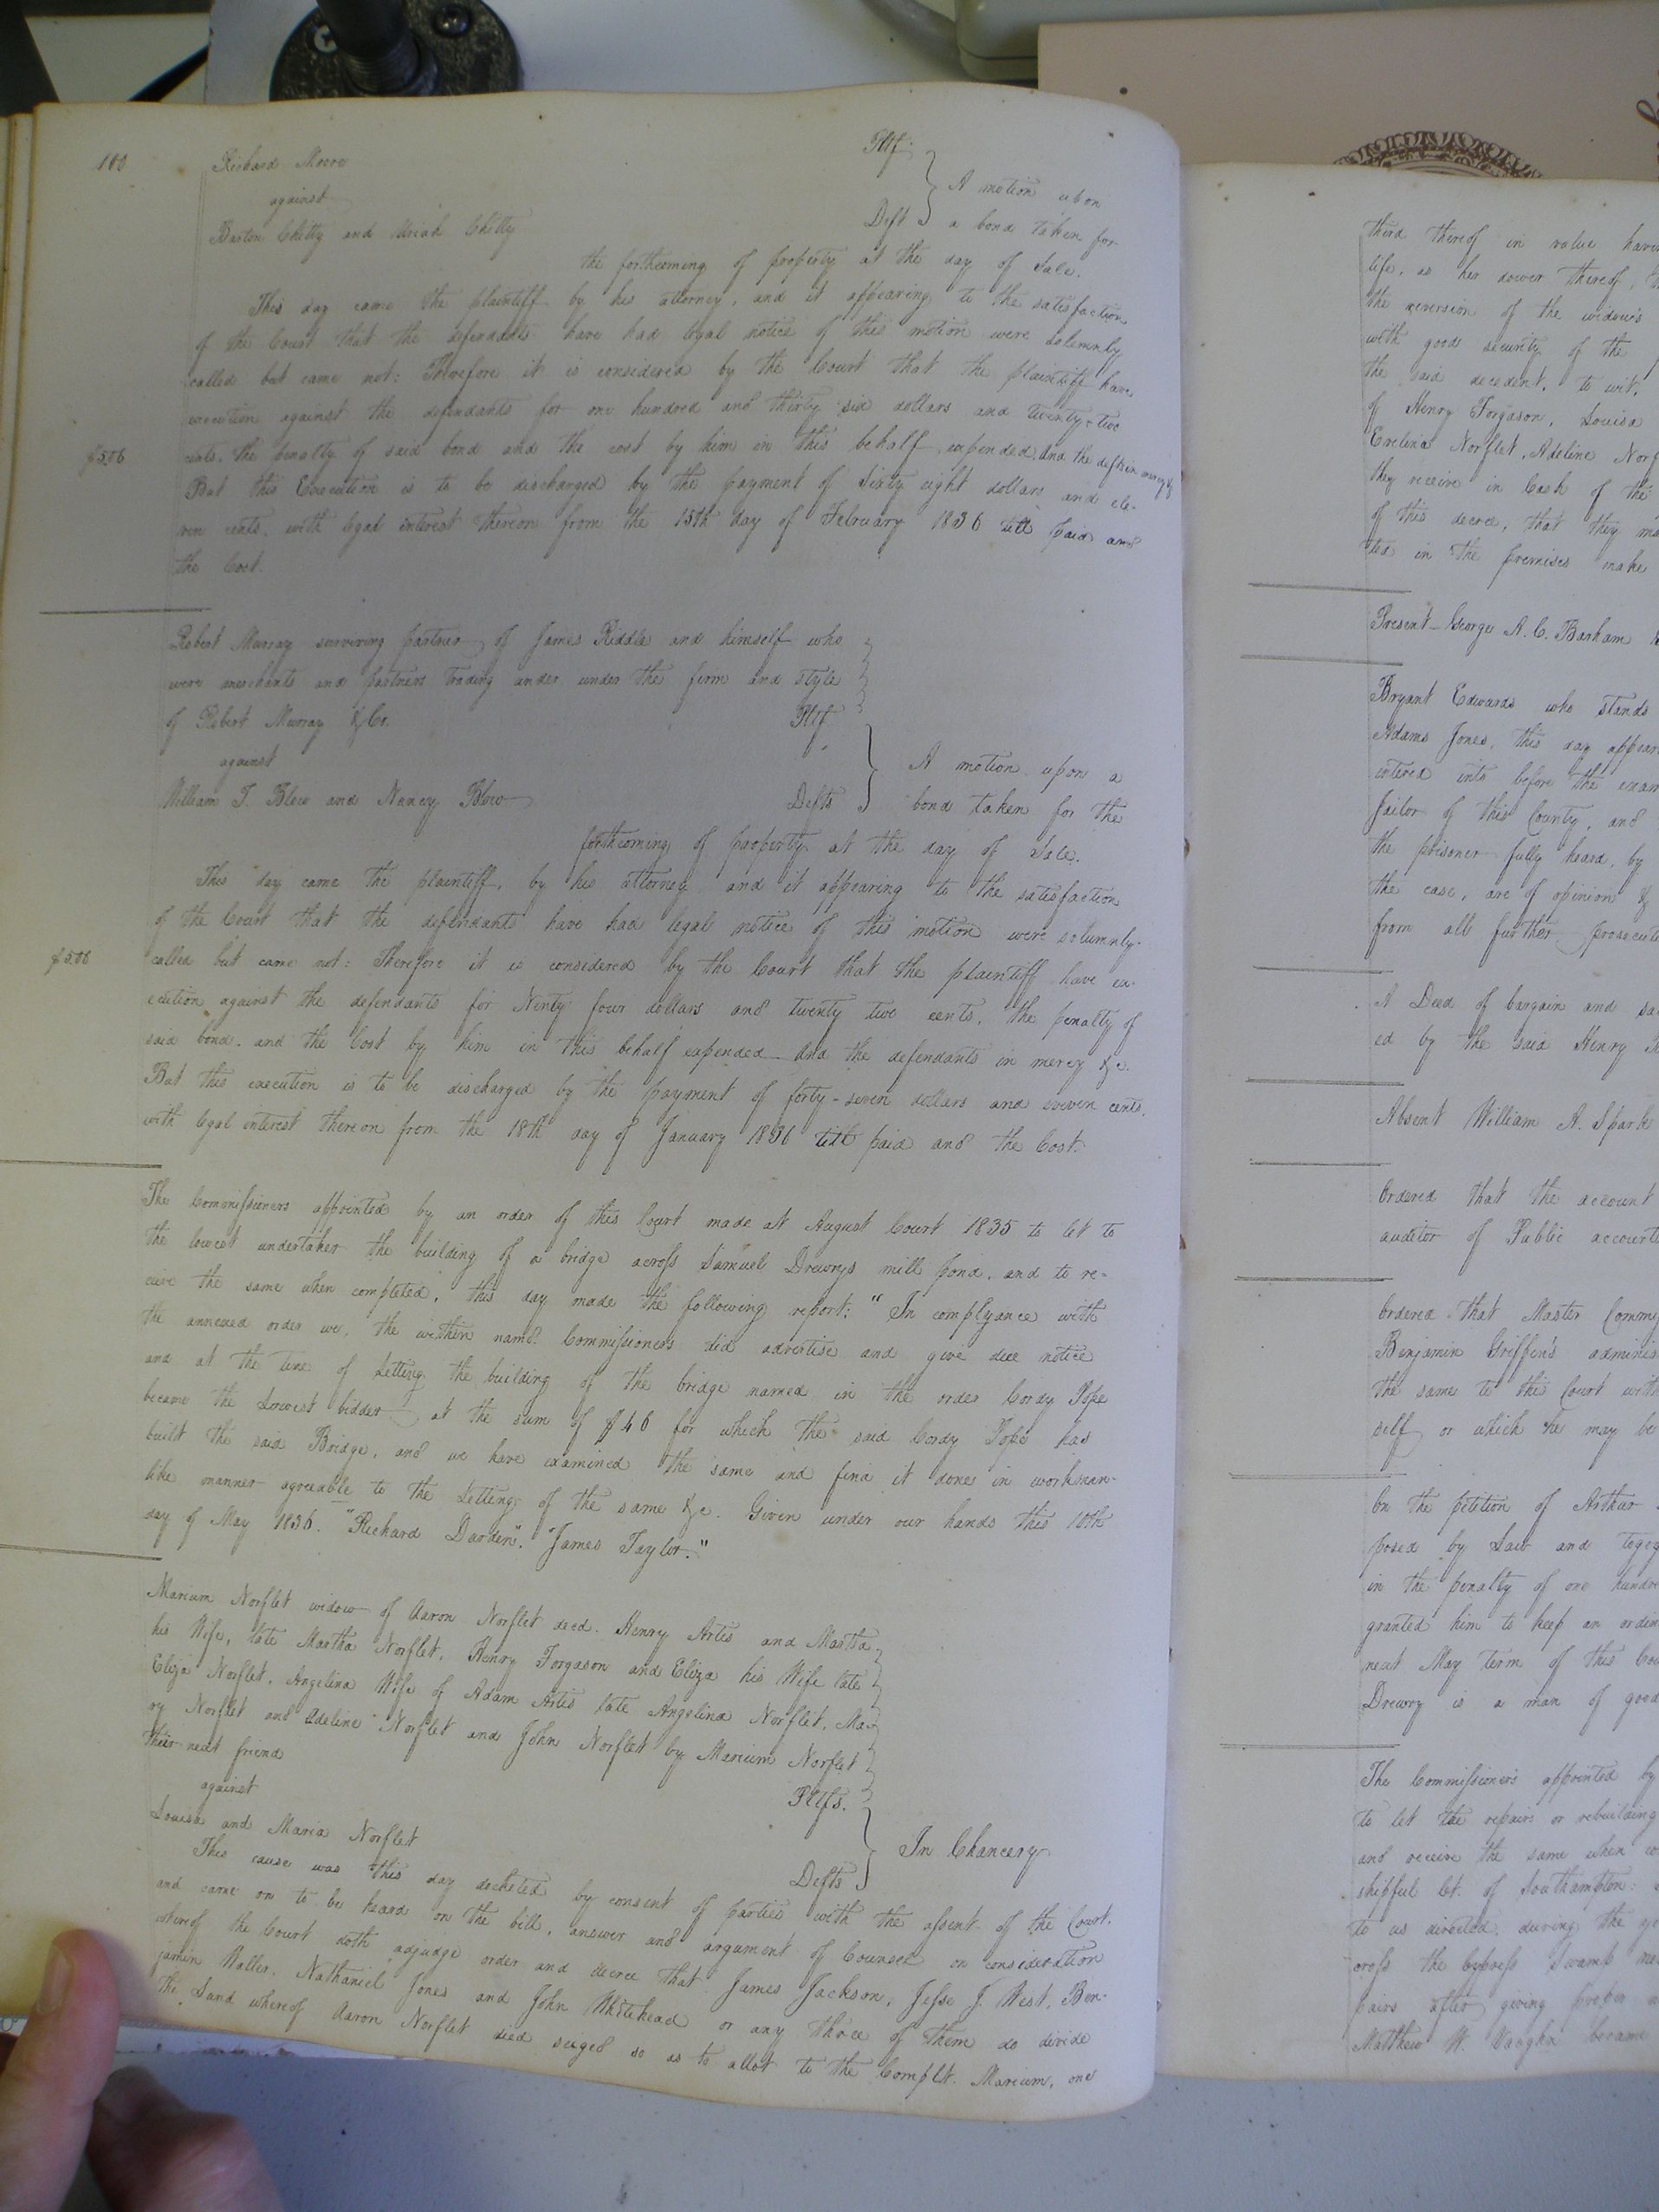 180
Richard Moore Pltf.
against
Barton Chitty and Uriah Chitty Deft
A motion upon
a bond taken for
the forthcoming of property at the day of Sale.
This day came the plaintiff by his attorney, and it appearing to the satisfaction
of the Court that the defendants have had legal notice of this motion were solemnly
called but came not: Therefore it is considered by the Court that the plaintiff have
execution against the defendants for one hundred and thirty six dollars and twenty-two
$5.06
cents, the penalty of said bond and the cost by him in this behalf expended. And the defts in mercy &c
But this Execution is to be discharged by the payment of Sixty eight dollars and ele-
ven cents, with legal interest thereon from the 15th day of February 1836 till paid and
the Cost.
Robert Murray surviving partner of James Riddle and himself who
were merchants and partners trading under under the firm and style
of Robert Murray & Co. Pltf.
against
William T. Blow and Nancy Blow Defts
A motion upon a
bond taken for the
forthcoming of property at the day of Sale.
This day came the plaintiff, by his attorney and it appearing to the satisfaction
of the Court that the defendants have had legal notice of this motion were solumnly
$5.06
called but came not: Therefore it is considered by the Court that the plaintiff have ex-
ecution against the defendants for Ninty four dollars and twenty two cents, the penalty of
said bond, and the Cost by him in this behalf expended And the defendants in mercy &c.
But this execution is to be discharged by the payment of forty-seven dollars and eleven cents,
with legal interest thereon from the 18th day of January 1836 till paid and the Cost.
The Commissioners appointed by an order of this Court made at August Court 1835 to let to
the lowest undertaker the building of a bridge across Samuel Drewrys mill pond, and to re-
ceive the same when completed, this day made the following report: "In complyance with
the annexed order we, the within namd. Commissioners did advertise and give due notice
and at the time of Letting the building of the bridge named in the order Cordy Pope
became the Lowest bidder at the sum of $46 for which the said Cordy Pope has
built the said Bridge, and we have examined the same and find it done in workman-
like manner agreeable to the Letting of the same &c. Given under our hands this 10th
day of May 1836. "Richard Darden". "James Taylor."
Marium Norflet widow of Aaron Norflet decd. Henry Artis and Martha
his Wife, late Martha Norflet, Henry Forgason and Eliza his Wife late
Eliza Norflet, Angelina Wife of Adam Artis late Angelina Norflet, Ma-
ry Norflet and Adeline Norflet and John Norflet by Marium Norflet
their next friend Pltfs.
against
Louisa and Maria Norflet Defts
In Chancery
This cause was this day docketed by consent of parties with the assent of the Court,
and came on to be heard on the bill, answer and argument of Counsel on consideration
whereof the Court doth adjudge order and decree that James Jackson, Jesse J. West, Ben-
jamin Waller, Nathaniel Jones and John Whitehead or any three of them do divide
the Land whereof Aaron Norflet died seized so as to allot to the Complt. Marium, one
third thereof in value
life, as her dower thereof,
the reversion of the widow's
with good security of the
the said decedent, to wit,
of Henry Forgason, Louisa
Evelina Norflet, Adeline
they receive in Cash of the
of this decree, that they
ted in the premises make
Present George A. C. Barham
Bryant Edwards who stands
Adams Jones, this day
entered into before the
Jailor of this County, and
the prisoner fully heard, by
the case, are of opinion &
from all further
A Deed of bargain and
ed by the said Henry
Absent William A. Spark
Ordered that the account
auditor of Public
Ordered that Master
Benjamin Griffin's
the same to this Court
self or which he may be
On the petition of Arthur
posed by Law and
in the penalty of one
granted him to keep an
next May term of this
Drewry is a man of good
The Commissioners appointed by
to let the repairs or rebuilding
and receive the same when
shipful Ct. of Southampton:
to us directed, during the
cross the Cypress Swamp
pairs after giving proper
Matthew W. Vaughn became